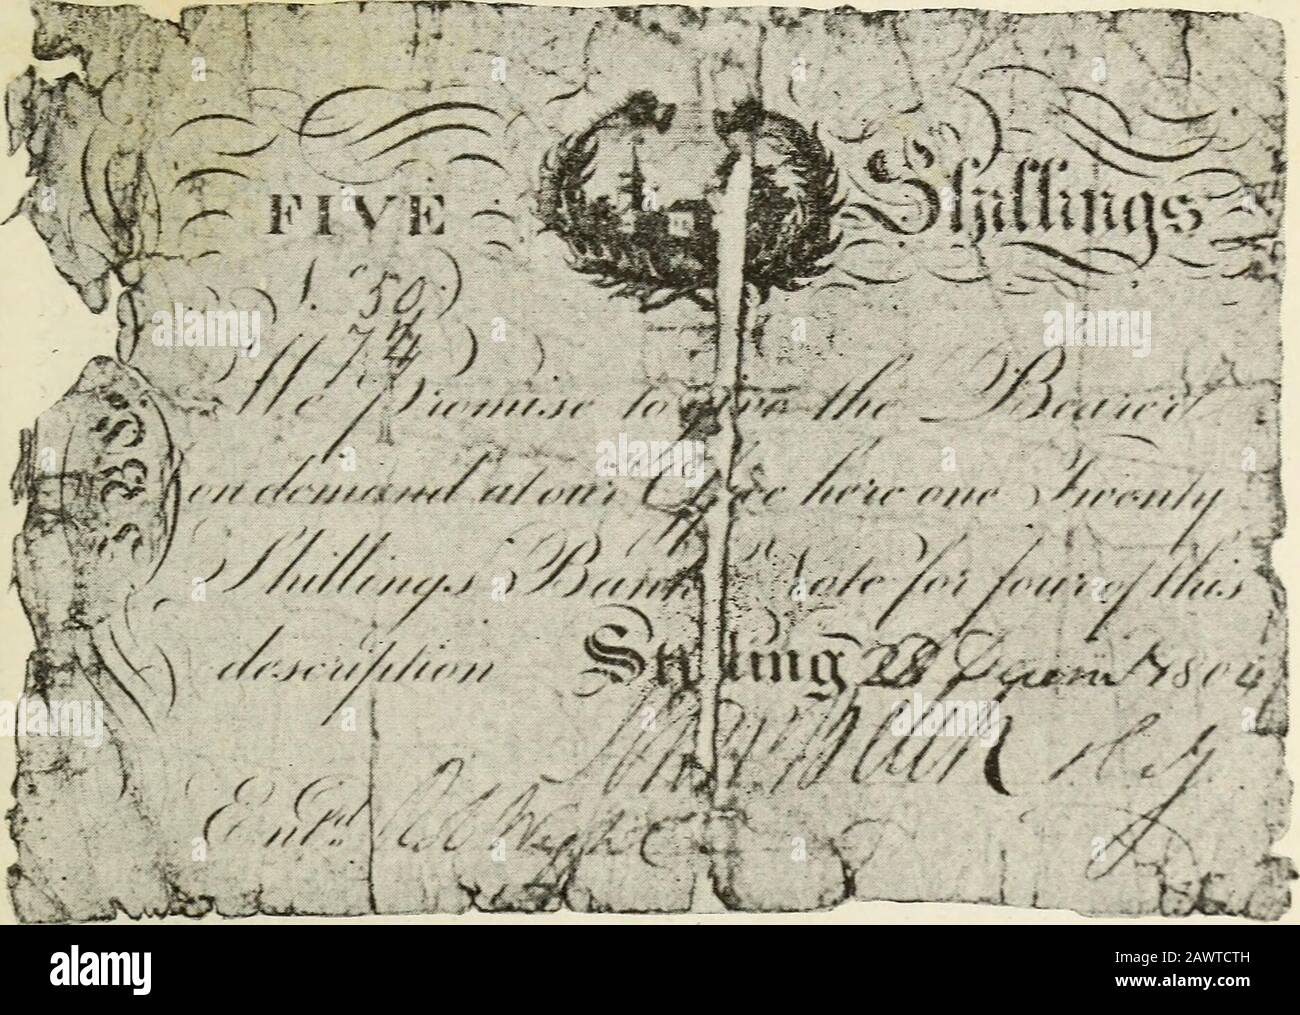 FIVE Shillings
No. 50
7/4
We Promise to give the Bearer
on demand at our Office here one Twenty
Shillings Bank Note for four of this
description Stirling 28 1804
Entd.
S.B.
alamy
Image ID: 2AWTCTH
www.alamy.com